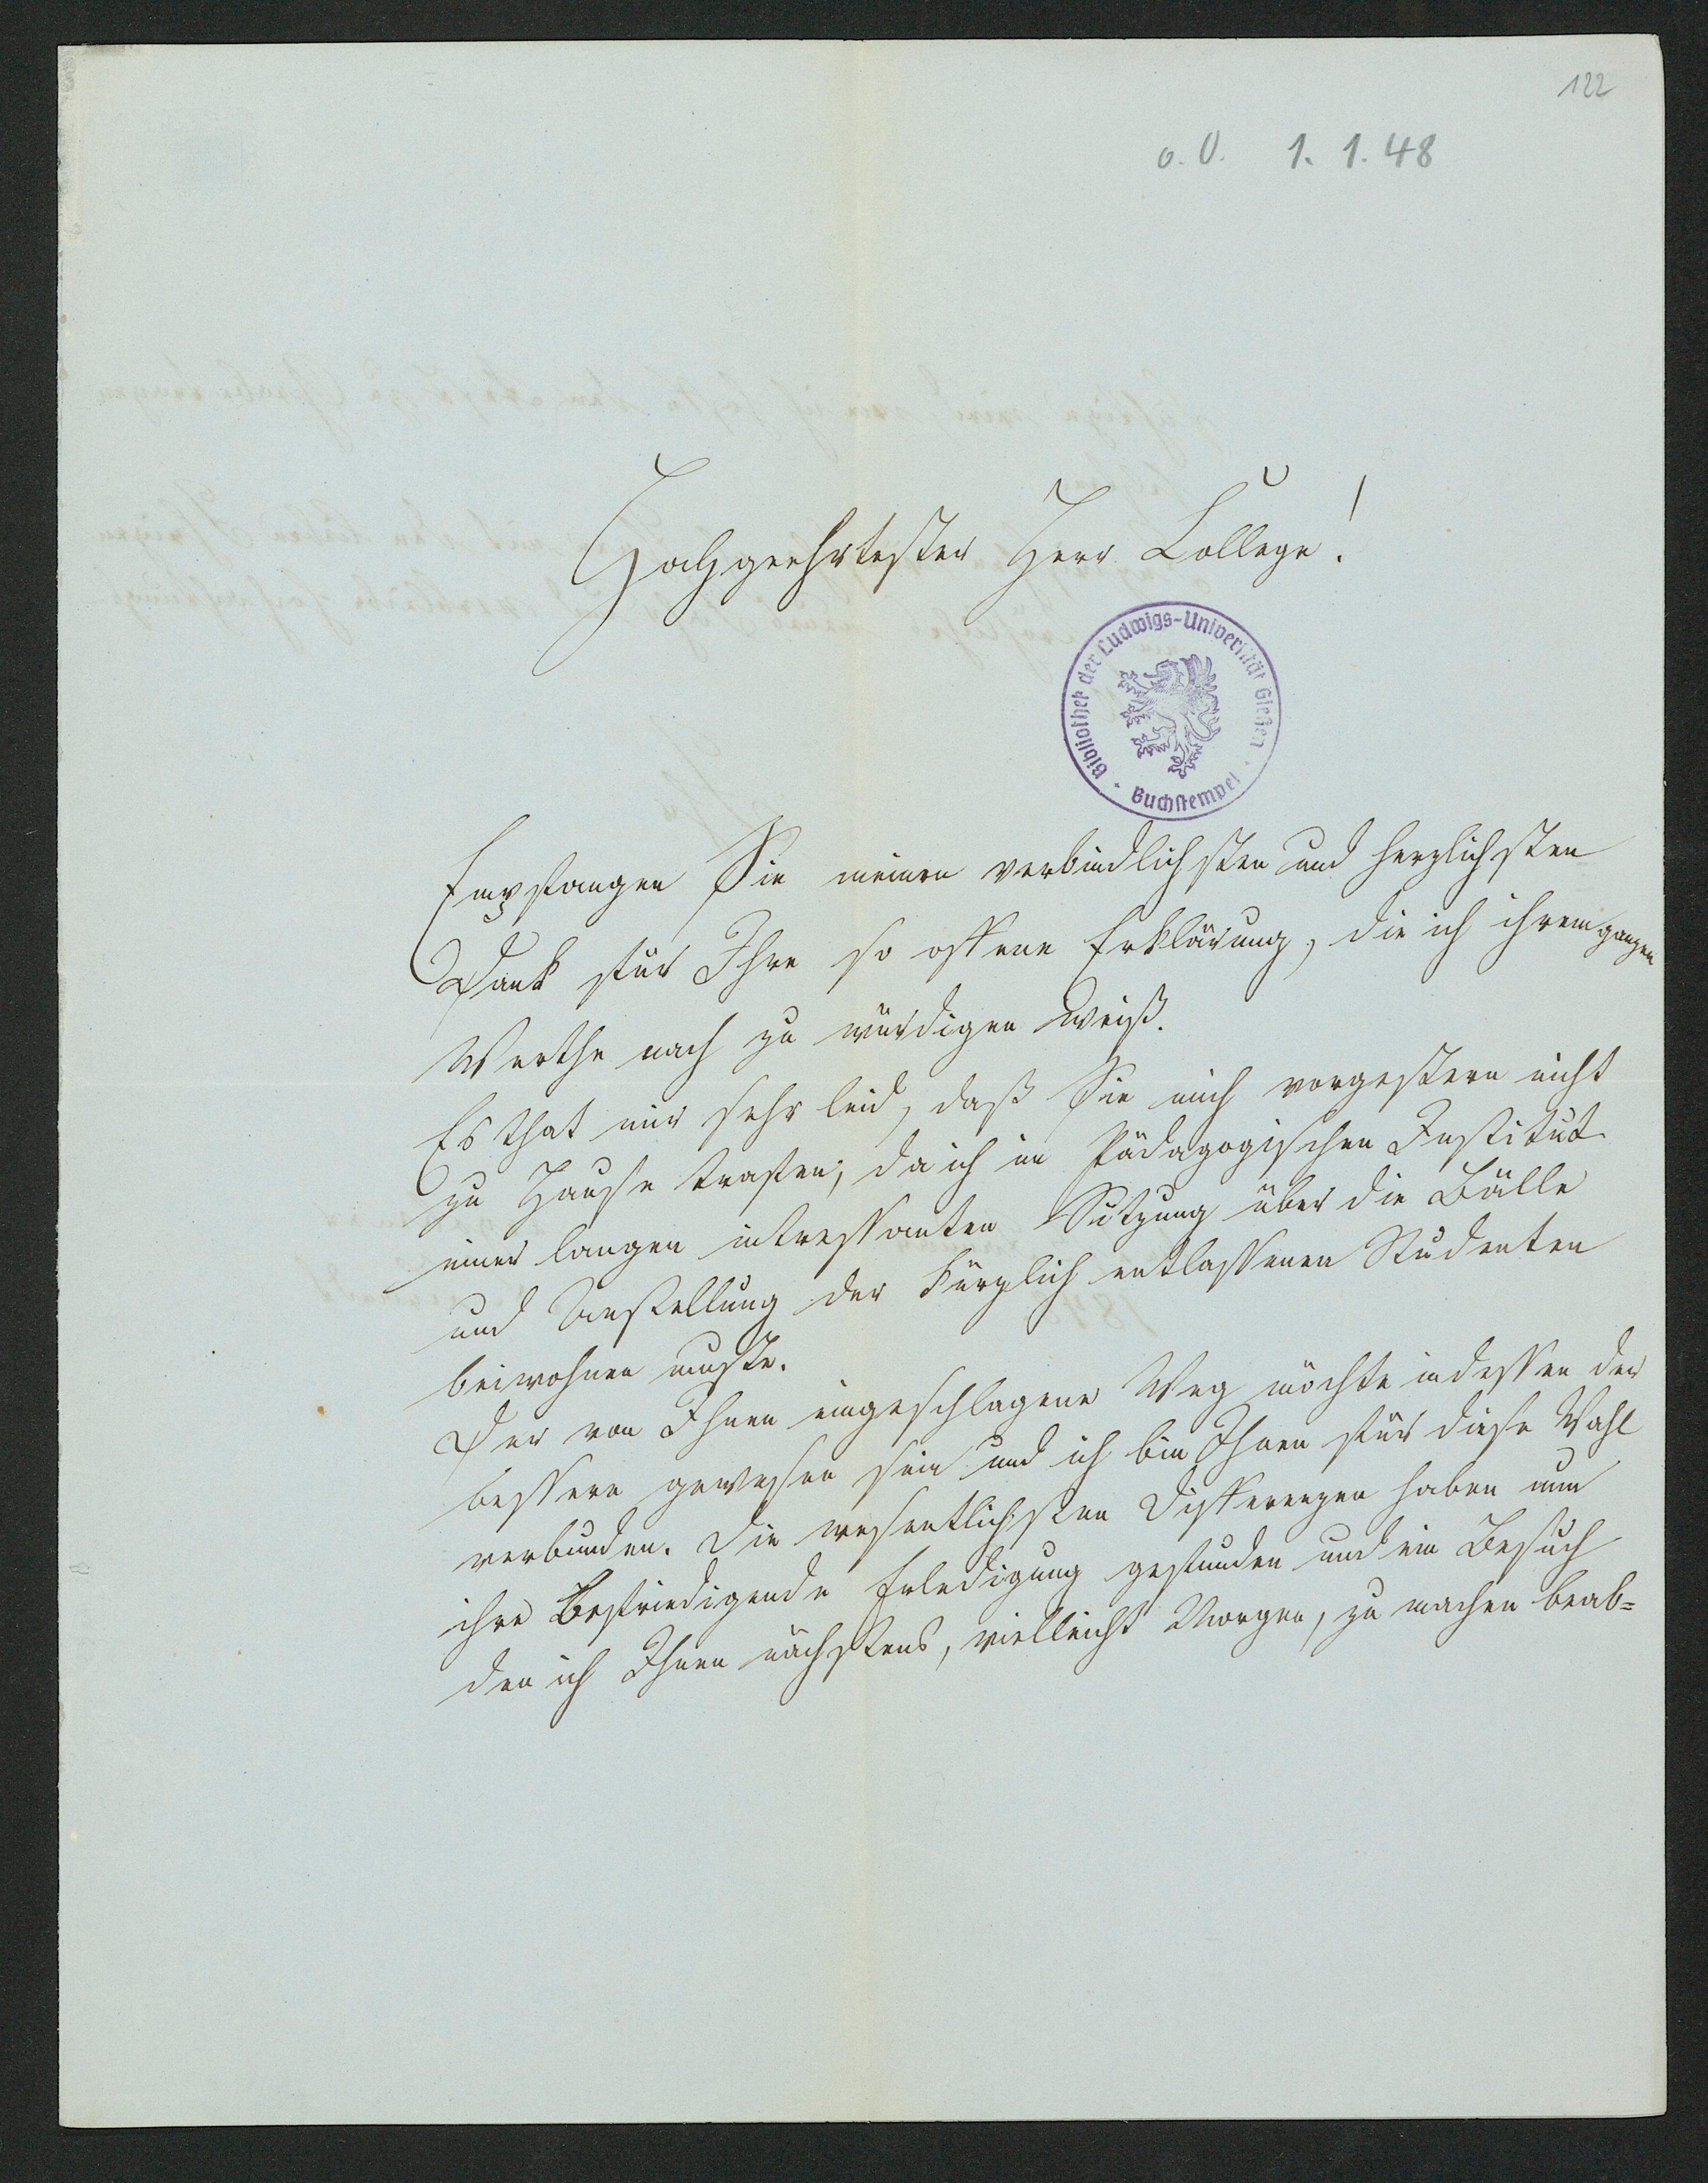 122
o. O. 1. 1. 48
Hochgeehrtester Herr College!
Bibliothek der Ludwigs-Universität Gießen · Buchstempel ·
Empfangen Sie meinen verbindlichsten und herzlichsten
Dank für Ihre so offene Erklärung, die ich ihrem ganzen
Werthe nach zu würdigen weiß.
Es that mir sehr leid, daß Sie mich vorgestern nicht
zu Hause trafen, da ich im Pädagogischen Institut
einer langen intressanten Sitzung über die Bälle
und Anstellung der kürzlich entlassenen Studenten
beiwohnen mußte.
Der von Ihnen eingeschlagene Weg möchte indessen der
bessere gewesen sein und ich bin Ihnen für diese Wahl
verbunden. Die wesentlichsten Differenzen haben nun
ihre Befriedigende Erledigung gefunden und ein Besuch
den ich Ihnen nächstens, vielleicht Morgen, zu machen beab=